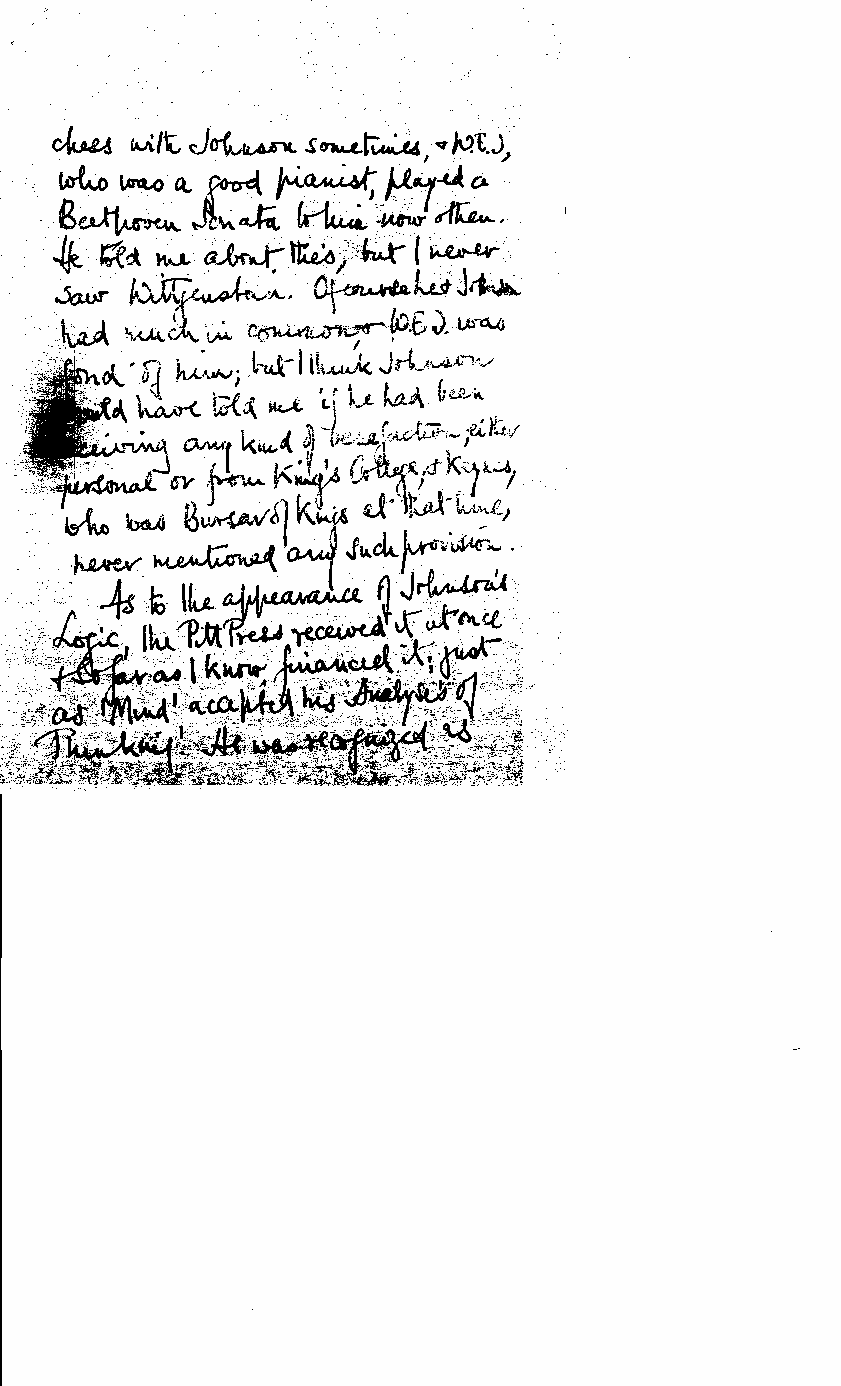 chess with Johnson sometimes, & W.E.J,
who was a good pianist, played a
Beethoven Sonata to him now & then.
He told me about this, but I never
saw Wittgenstein. Of course he & Johnson
had much in common, & W.E.J. was
fond of him; but I think Johnson
would have told me if he had been
receiving any kind of benefaction, either
personal or from King's College, & Keynes,
who was Bursar of Kings at that time,
never mentioned any such provision.
As to the appearance of Johnson's
Logic, the Pitt Press received it at once
& so far as I know, financed it; just
as 'Mind' accepted his 'Analysis of
Thinking'. He was recognized as